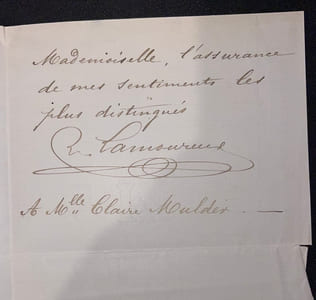 Mademoiselle, l'assurance
de mes sentiments les
plus distingués
Lamoureux
A Mlle Claire Mulder. —